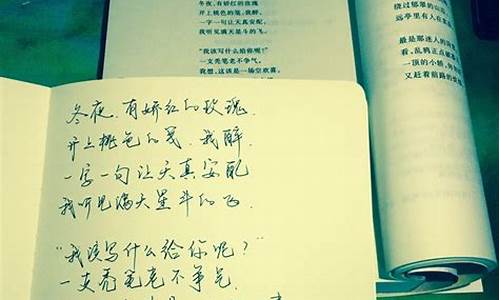 冬夜,有娇红的玫瑰
开上桃色的笺,我醉,
一字一句让天真安配,
我听见满天星斗的飞。
“我该写什么给你呢?”
一支秃笔老不争气。
我想,这该是一场空欢喜,
绕过郁翠的山
远亭里有人在
最是那迷人的
看,乱鸦正点
一顶的小轿,
又赶着前路的
冬夜,有娇红的玫瑰,
开上桃色的笺,我醉,
一字一句让天真安配
我听见满天星斗的飞。
“我该写什么给你呢?”
一支秃笔老不争气。